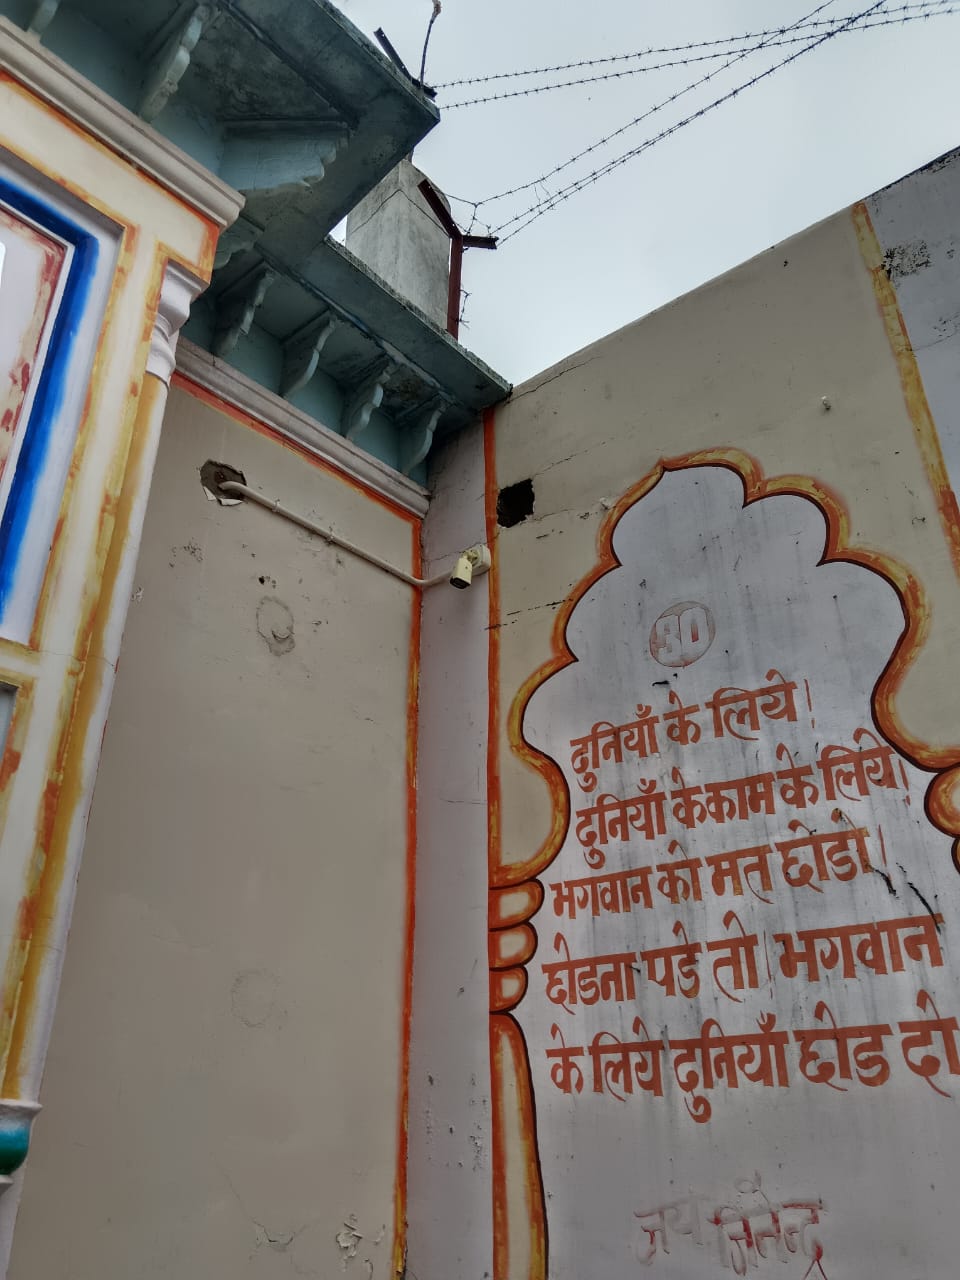 30
दुनियाँ के लिये।
दुनियाँ के काम के लिये।
भगवान को मत छोडो।
छोडना पडे तो। भगवान
के लिये दुनियाँ छोड दो
जय जिनेन्द्र